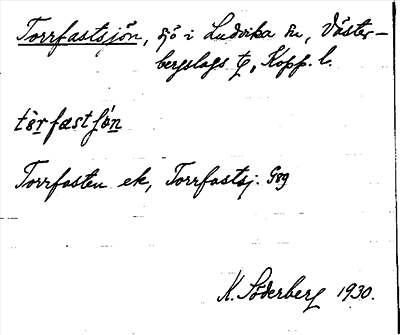 Torrfastsjön, sjö i Ludvika sn, Väster-
bergslags tg, Kopp. l.
tòrfastʃø̀n
Torrfasten ek, Torrfastsj. G89
K. Söderberg 1930.